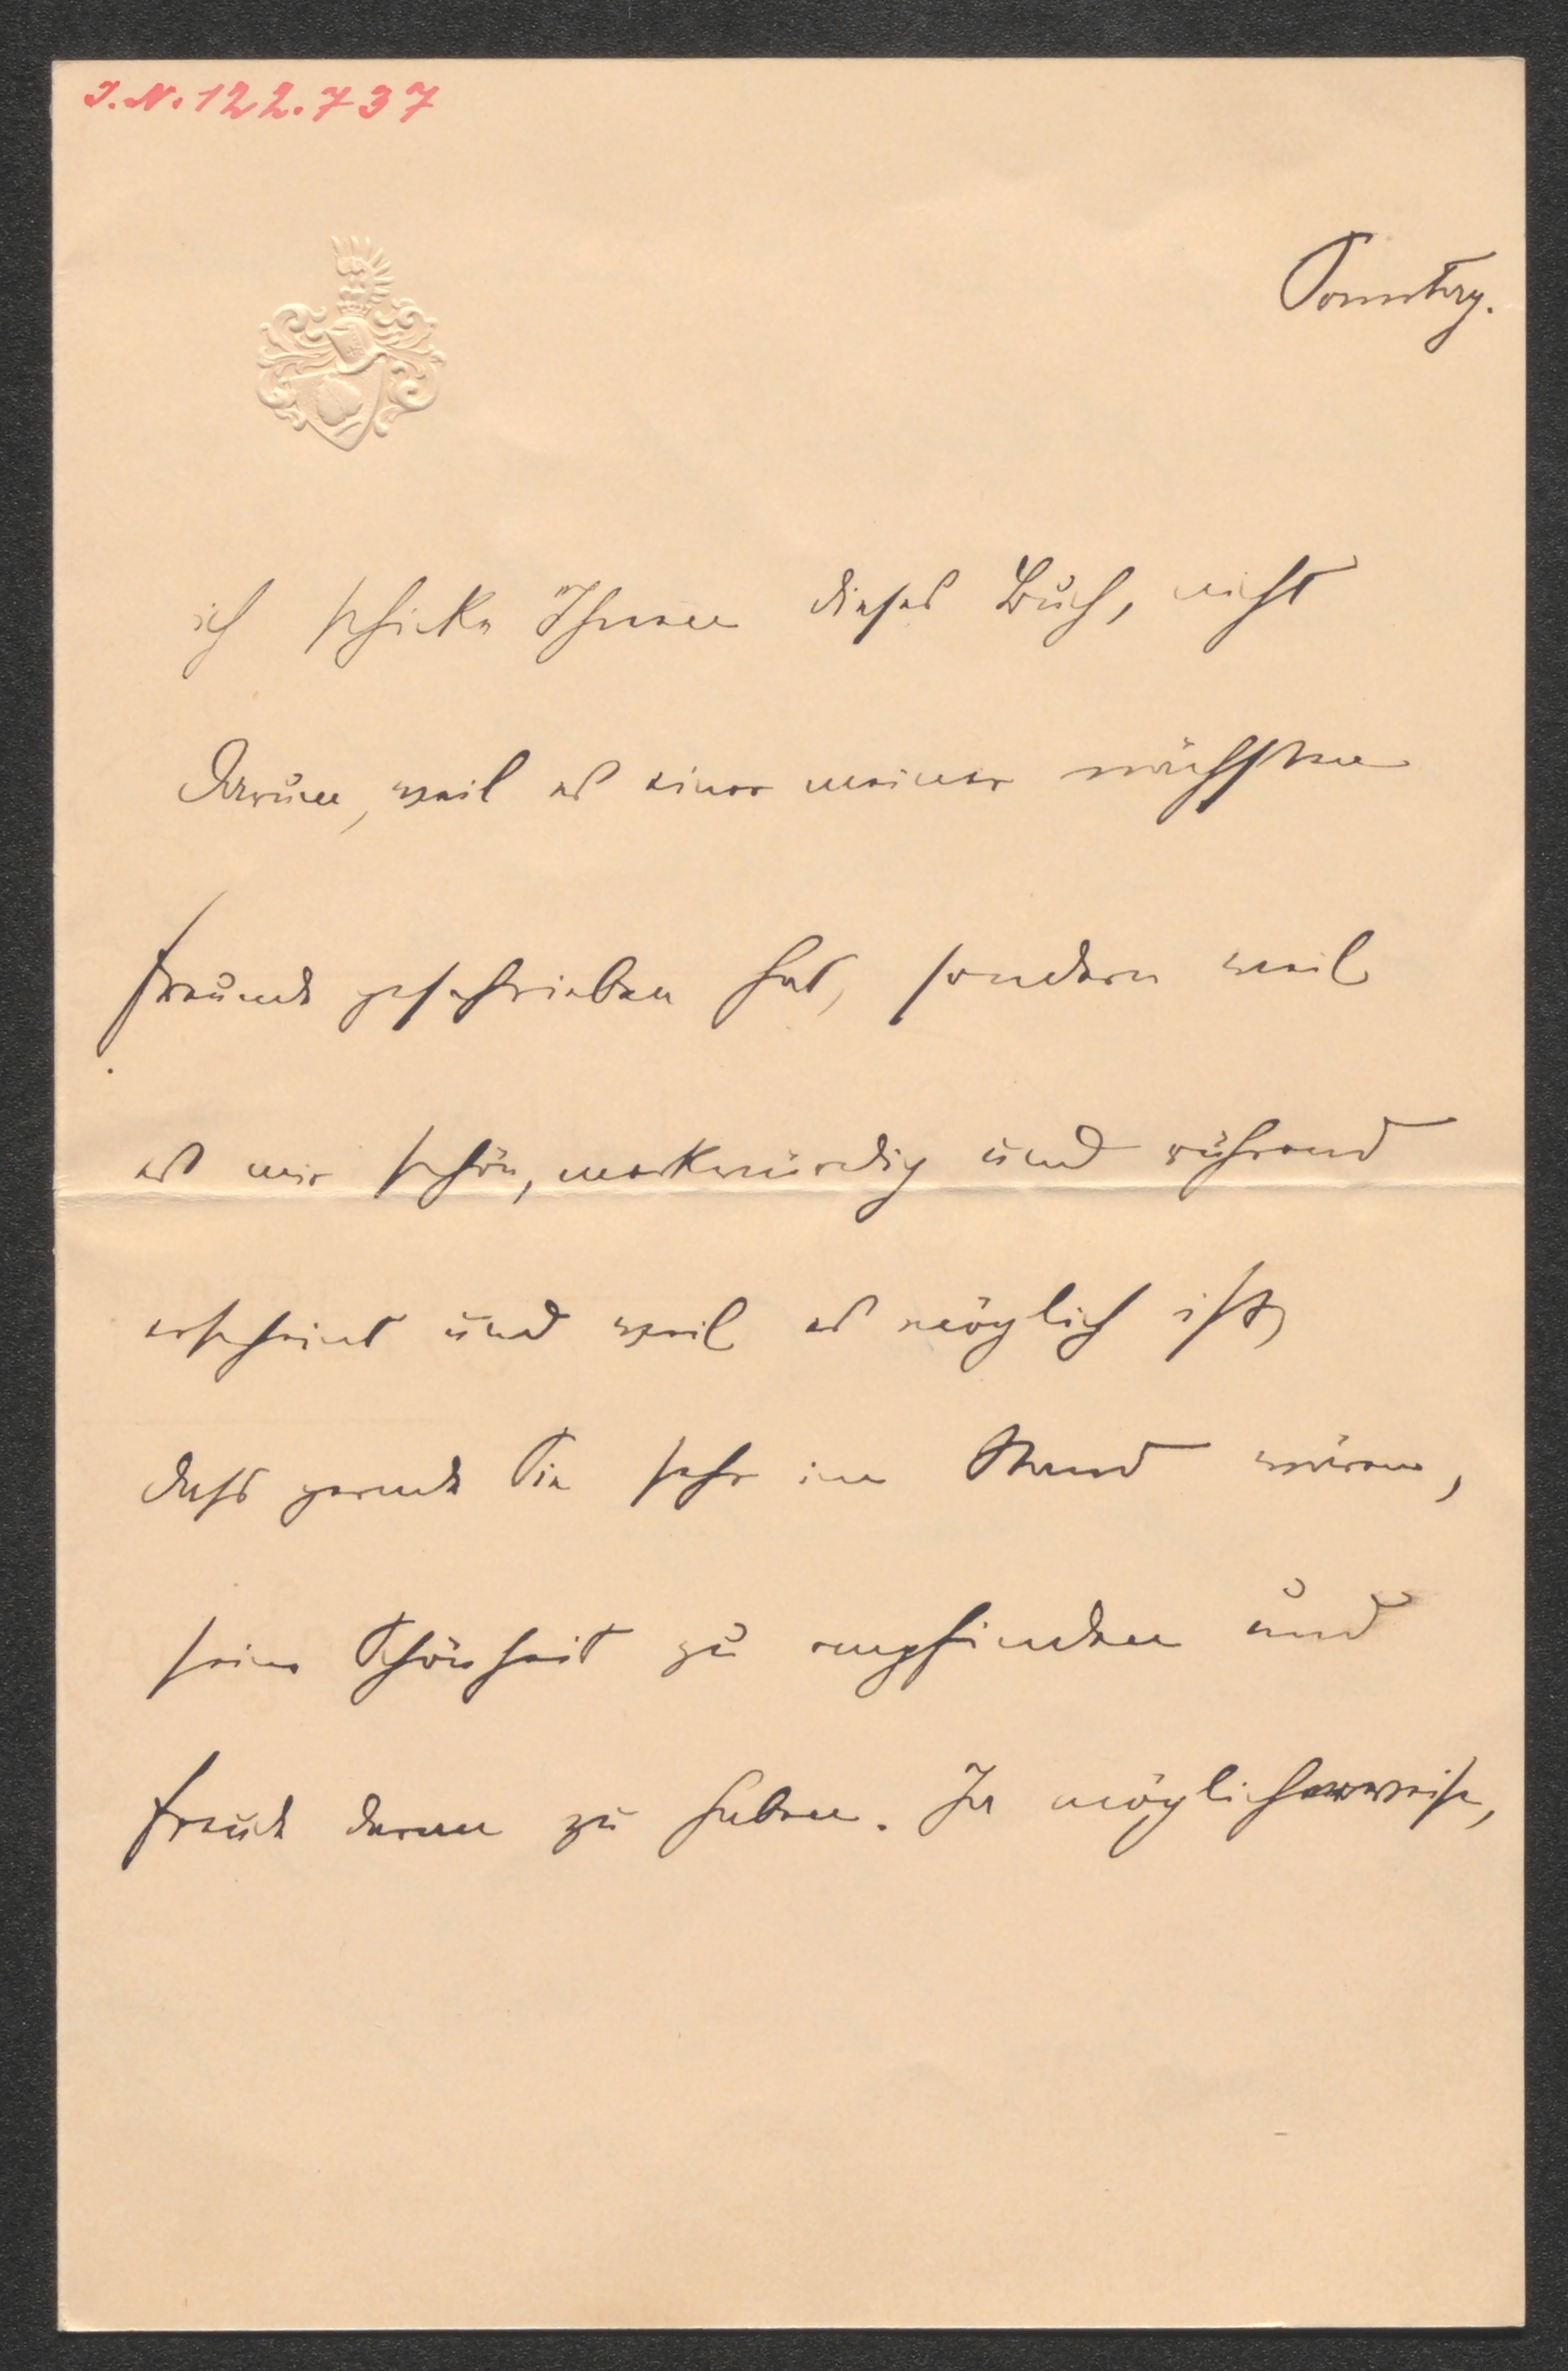 J.N. 122.737
Sonntag.
ich schicke Ihnen dieses Buch, nicht
darum, weil es einer meiner nächsten
Freunde geschrieben hat, sondern weil
es mir schön, merkwürdig und rührend
erscheint und weil es möglich ist,
dass gerade Sie sehr im Stand wären,
seine Schönheit zu empfinden und
Freude daran zu haben. Ja möglicherweise,